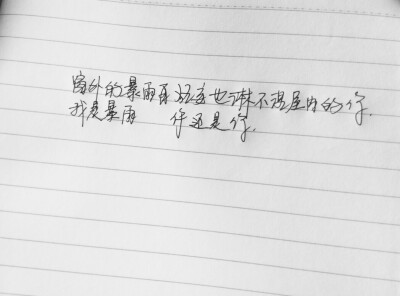 窗外的暴雨再猛也淋不湿屋内的你.
我是暴雨 你还是你.